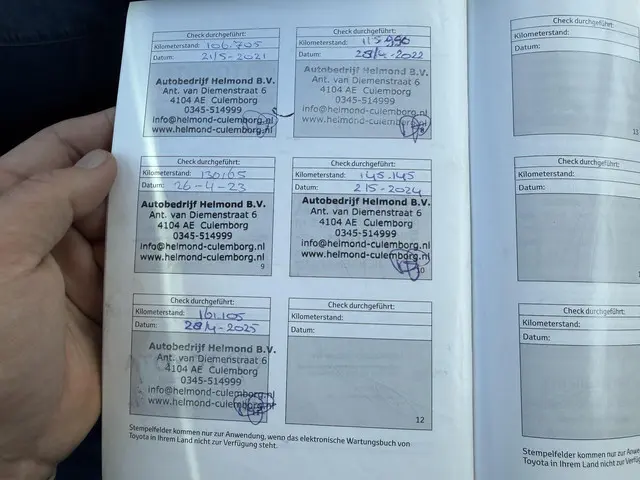 Check durchgeführt:
Kilometerstand: 106.705
Datum: 21/5-2021
Autobedrijf Helmond B.V.
Ant. van Diemenstraat 6
4104 AE Culemborg
0345-514999
info@helmond-culemborg.nl
www.helmond-culemborg.nl
Check durchgeführt:
Kilometerstand:
Datum: 28/4-2022
Autobedrijf Helmond B.V.
Ant. van Diemenstraat 6
4104 AE Culemborg
0345-514999
info@helmond-culemborg.nl
www.helmond-culemborg.nl
8
Check durchgeführt:
Kilometerstand: 130165
Datum: 26-4-23
Autobedrijf Helmond B.V.
Ant. van Diemenstraat 6
4104 AE Culemborg
0345-514999
info@helmond-culemborg.nl
www.helmond-culemborg.nl
9
Check durchgeführt:
Kilometerstand: 145.145
Datum: 2/5-2024
Autobedrijf Helmond B.V.
Ant. van Diemenstraat 6
4104 AE Culemborg
0345-514999
info@helmond-culemborg.nl
www.helmond-culemborg.nl
10
Check durchgeführt:
Kilometerstand: 161.105
Datum: 28/4-2025
Autobedrijf Helmond B.V.
Ant. van Diemenstraat 6
4104 AE Culemborg
0345-514999
info@helmond-culemborg.nl
www.helmond-culemborg.nl
Check durchgeführt:
Kilometerstand:
Datum:
12
Stempelfelder kommen nur zur Anwendung, wenn das elektronische Wartungsbuch von
Toyota in Ihrem Land nicht zur Verfügung steht.
Check durchgeführt:
Kilometerstand:
Datum:
13
Check durchgeführt:
Kilometerstand:
Datum:
Check durchgeführt:
Kilometerstand:
Datum:
Stempelfelder kommen nur zur
Toyota in Ihrem Land nicht zur